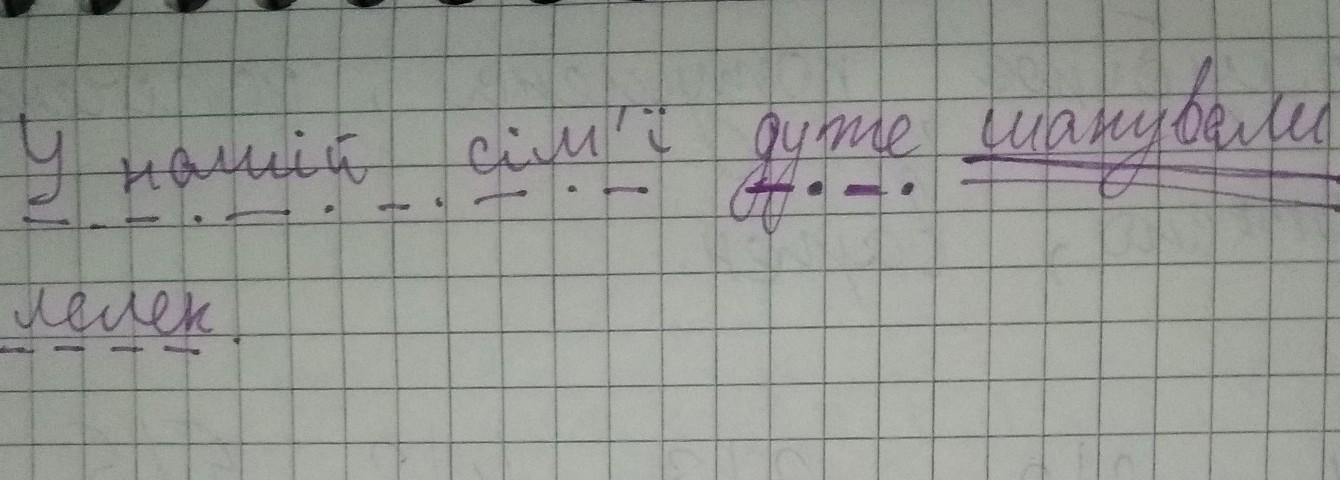 У нашій сім'ї дуже шанували
лелек.